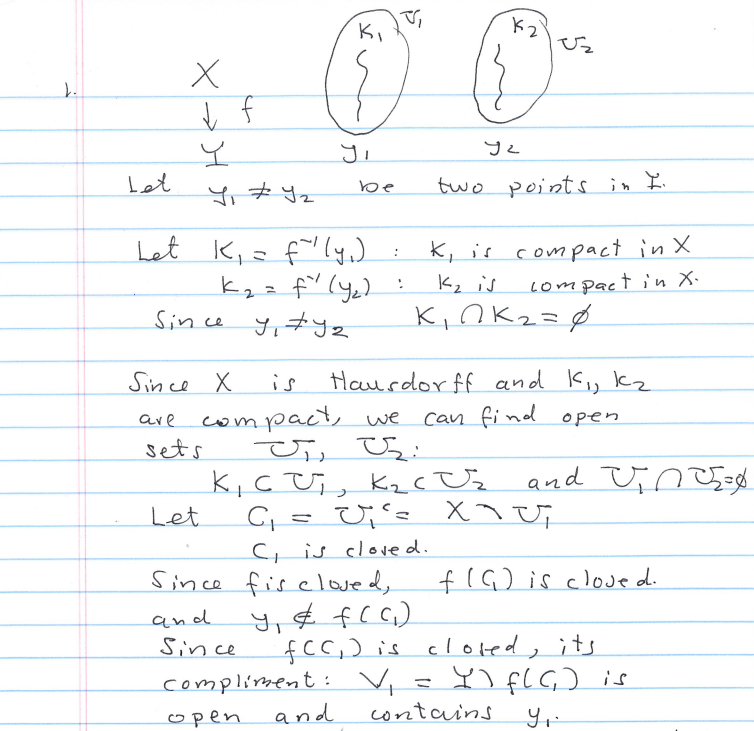 K₁ U₁ K₂ U₂
1. X
↓ f
Y y₁ y₂
Let y₁ ≠ y₂ be two points in Y.
Let K₁ = f⁻¹(y₁) : K₁ is compact in X
K₂ = f⁻¹(y₂) : K₂ is compact in X.
Since y₁ ≠ y₂ K₁ ∩ K₂ = ∅
Since X is Hausdorff and K₁, K₂
are compact, we can find open
sets U₁, U₂:
K₁ ⊂ U₁, K₂ ⊂ U₂ and U₁ ∩ U₂ = ∅
Let C₁ = U₁ᶜ = X \ U₁
C₁ is closed.
Since f is closed, f(C₁) is closed.
and y₁ ∉ f(C₁)
Since f(C₁) is closed, its
compliment: V₁ = Y \ f(C₁) is
open and contains y₁.